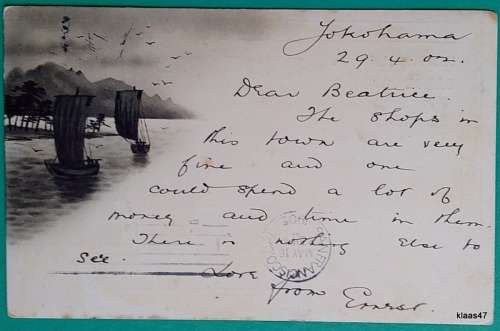 Yokohama
29.4.02.
Dear Beatrice.
The shops in
this town are very
fine and one
could spend a lot of
money and time in them.
There is nothing else to
see.
Love
from Ernest.
FRANCISCO
klaas47